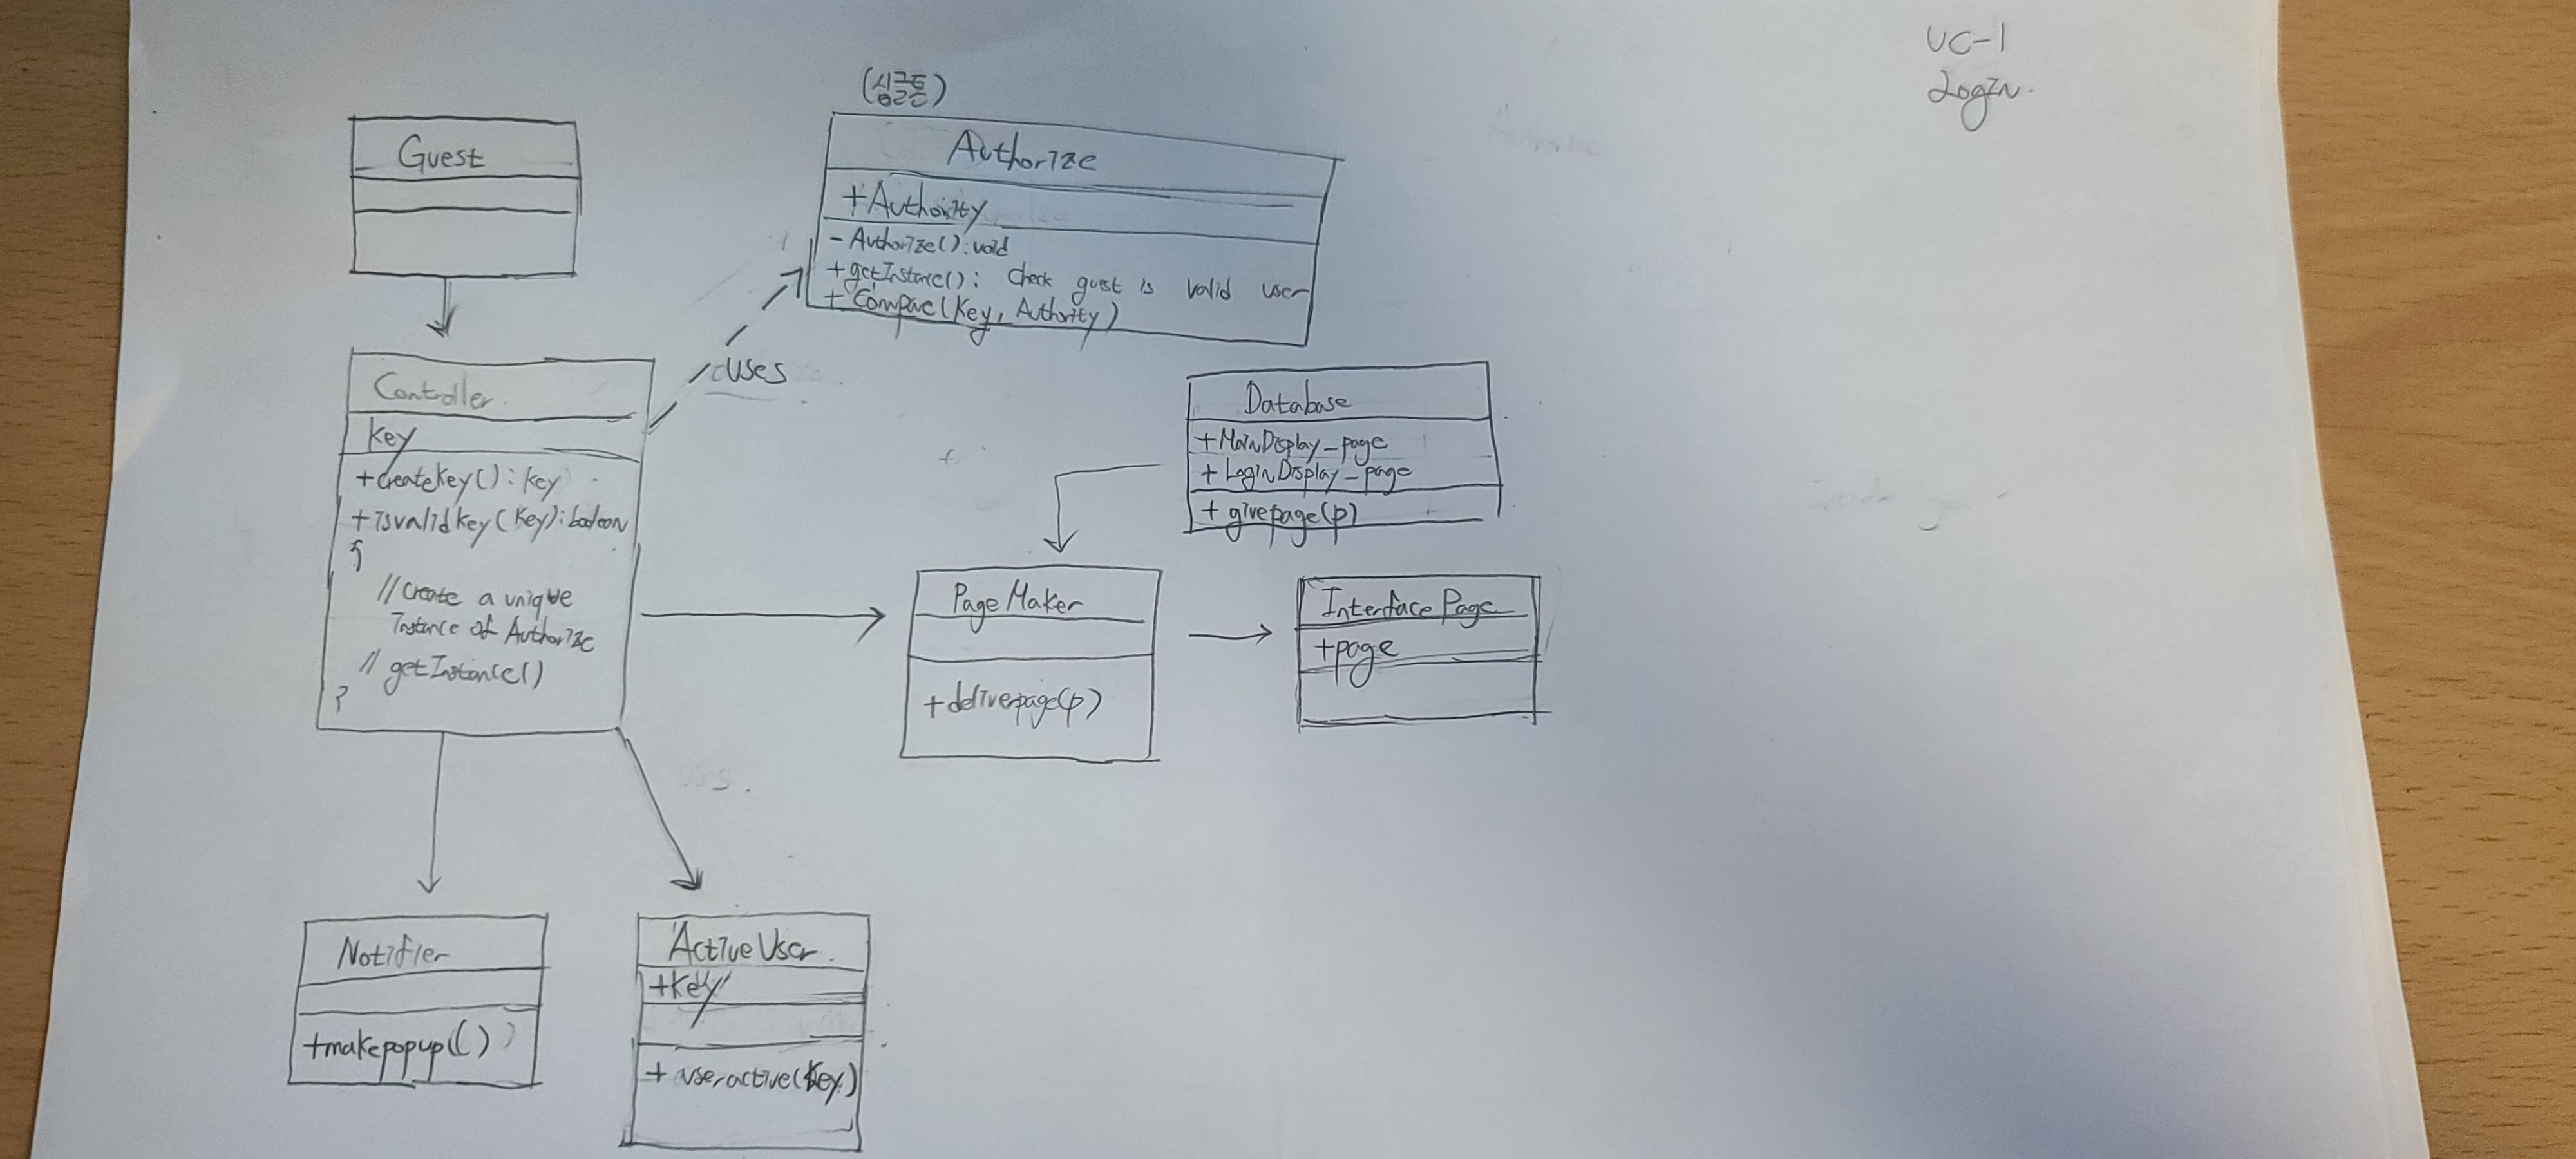 UC-1
Login.
(싱글톤)
Guest
Authorize
+Authority
- Authorize(): void
+getInstance(): check guest is valid user
+ Compare(Key, Authority)
uses
Controller.
key
+createkey(): key
+isvalidkey(Key): boolean
{
// Create a unique
Instance of Authorize
// getInstance()
}
Database
+MainDisplay_page
+ LoginDisplay_page
+ givepage(p)
PageMaker
+deliverpage(p)
InterfacePage
+page
Notifier
+makepopup()
ActiveUser.
+Key
+ useractive(Key)